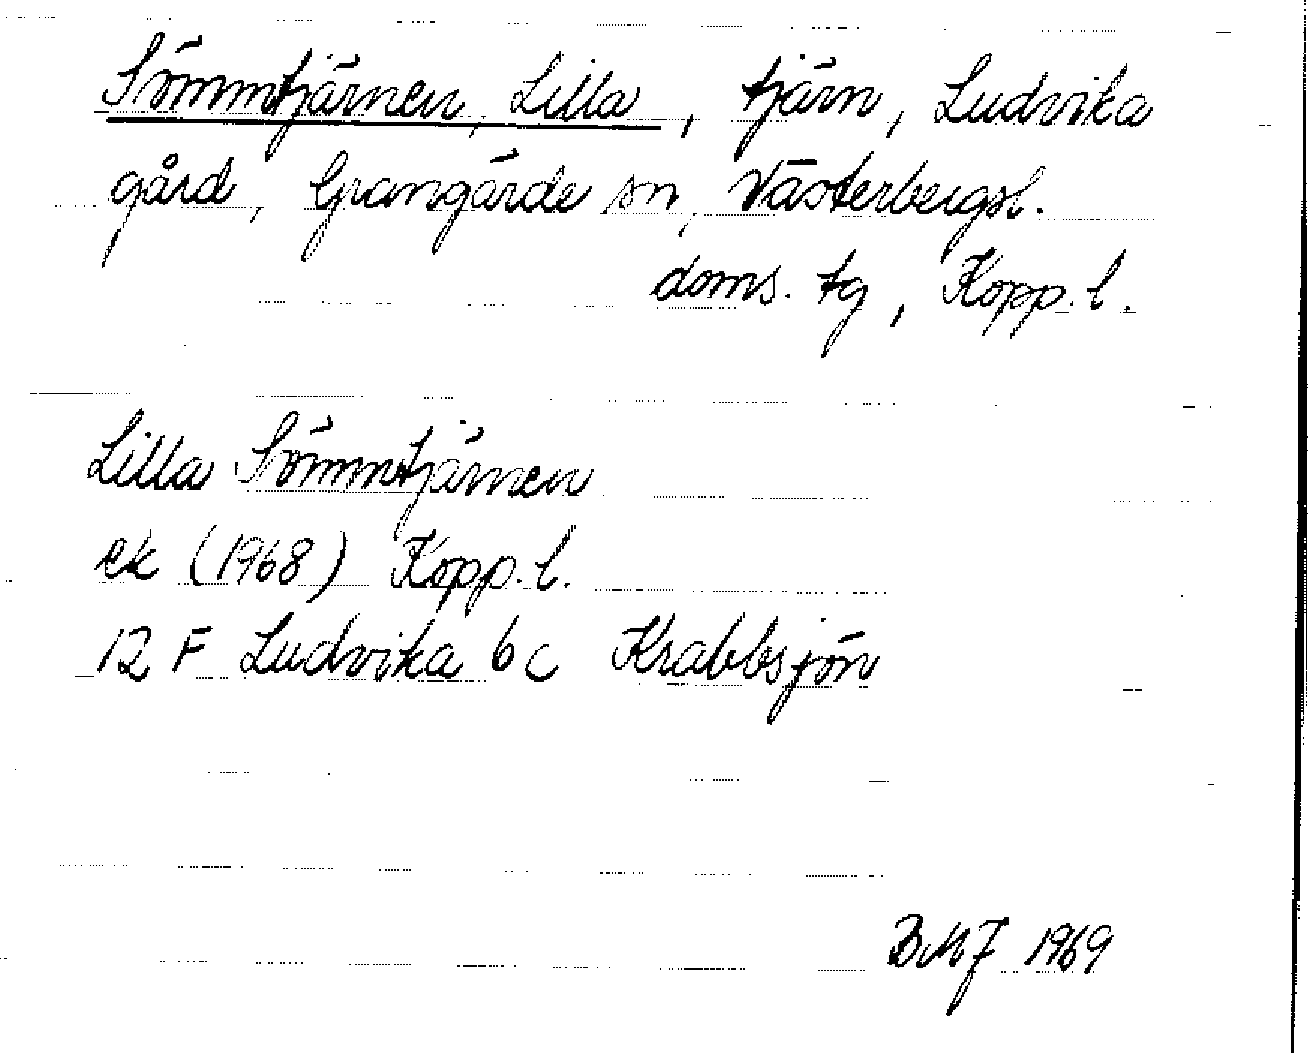 Sömmtjärnen, Lilla, tjärn, Ludvika
gård, Grangärde sn, Västerbergsl.
doms. tg, Kopp. l.
Lilla Sömmtjärnen
ek (1968) Kopp. l.
12 F Ludvika 6 c Krabbsjön
BMJ 1969